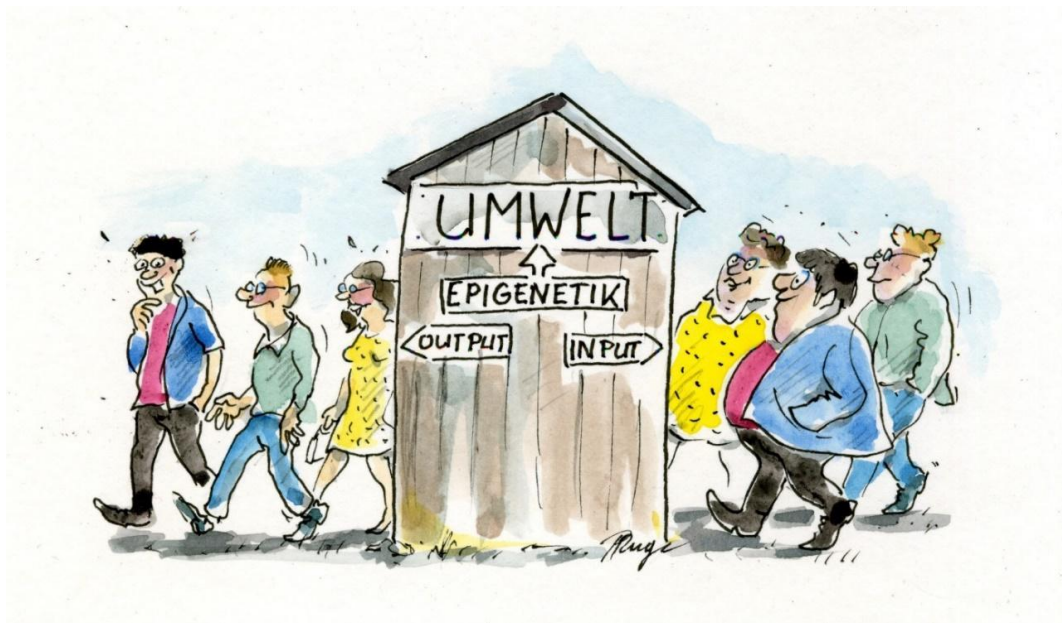 UMWELT
EPIGENETIK
OUTPUT
INPUT